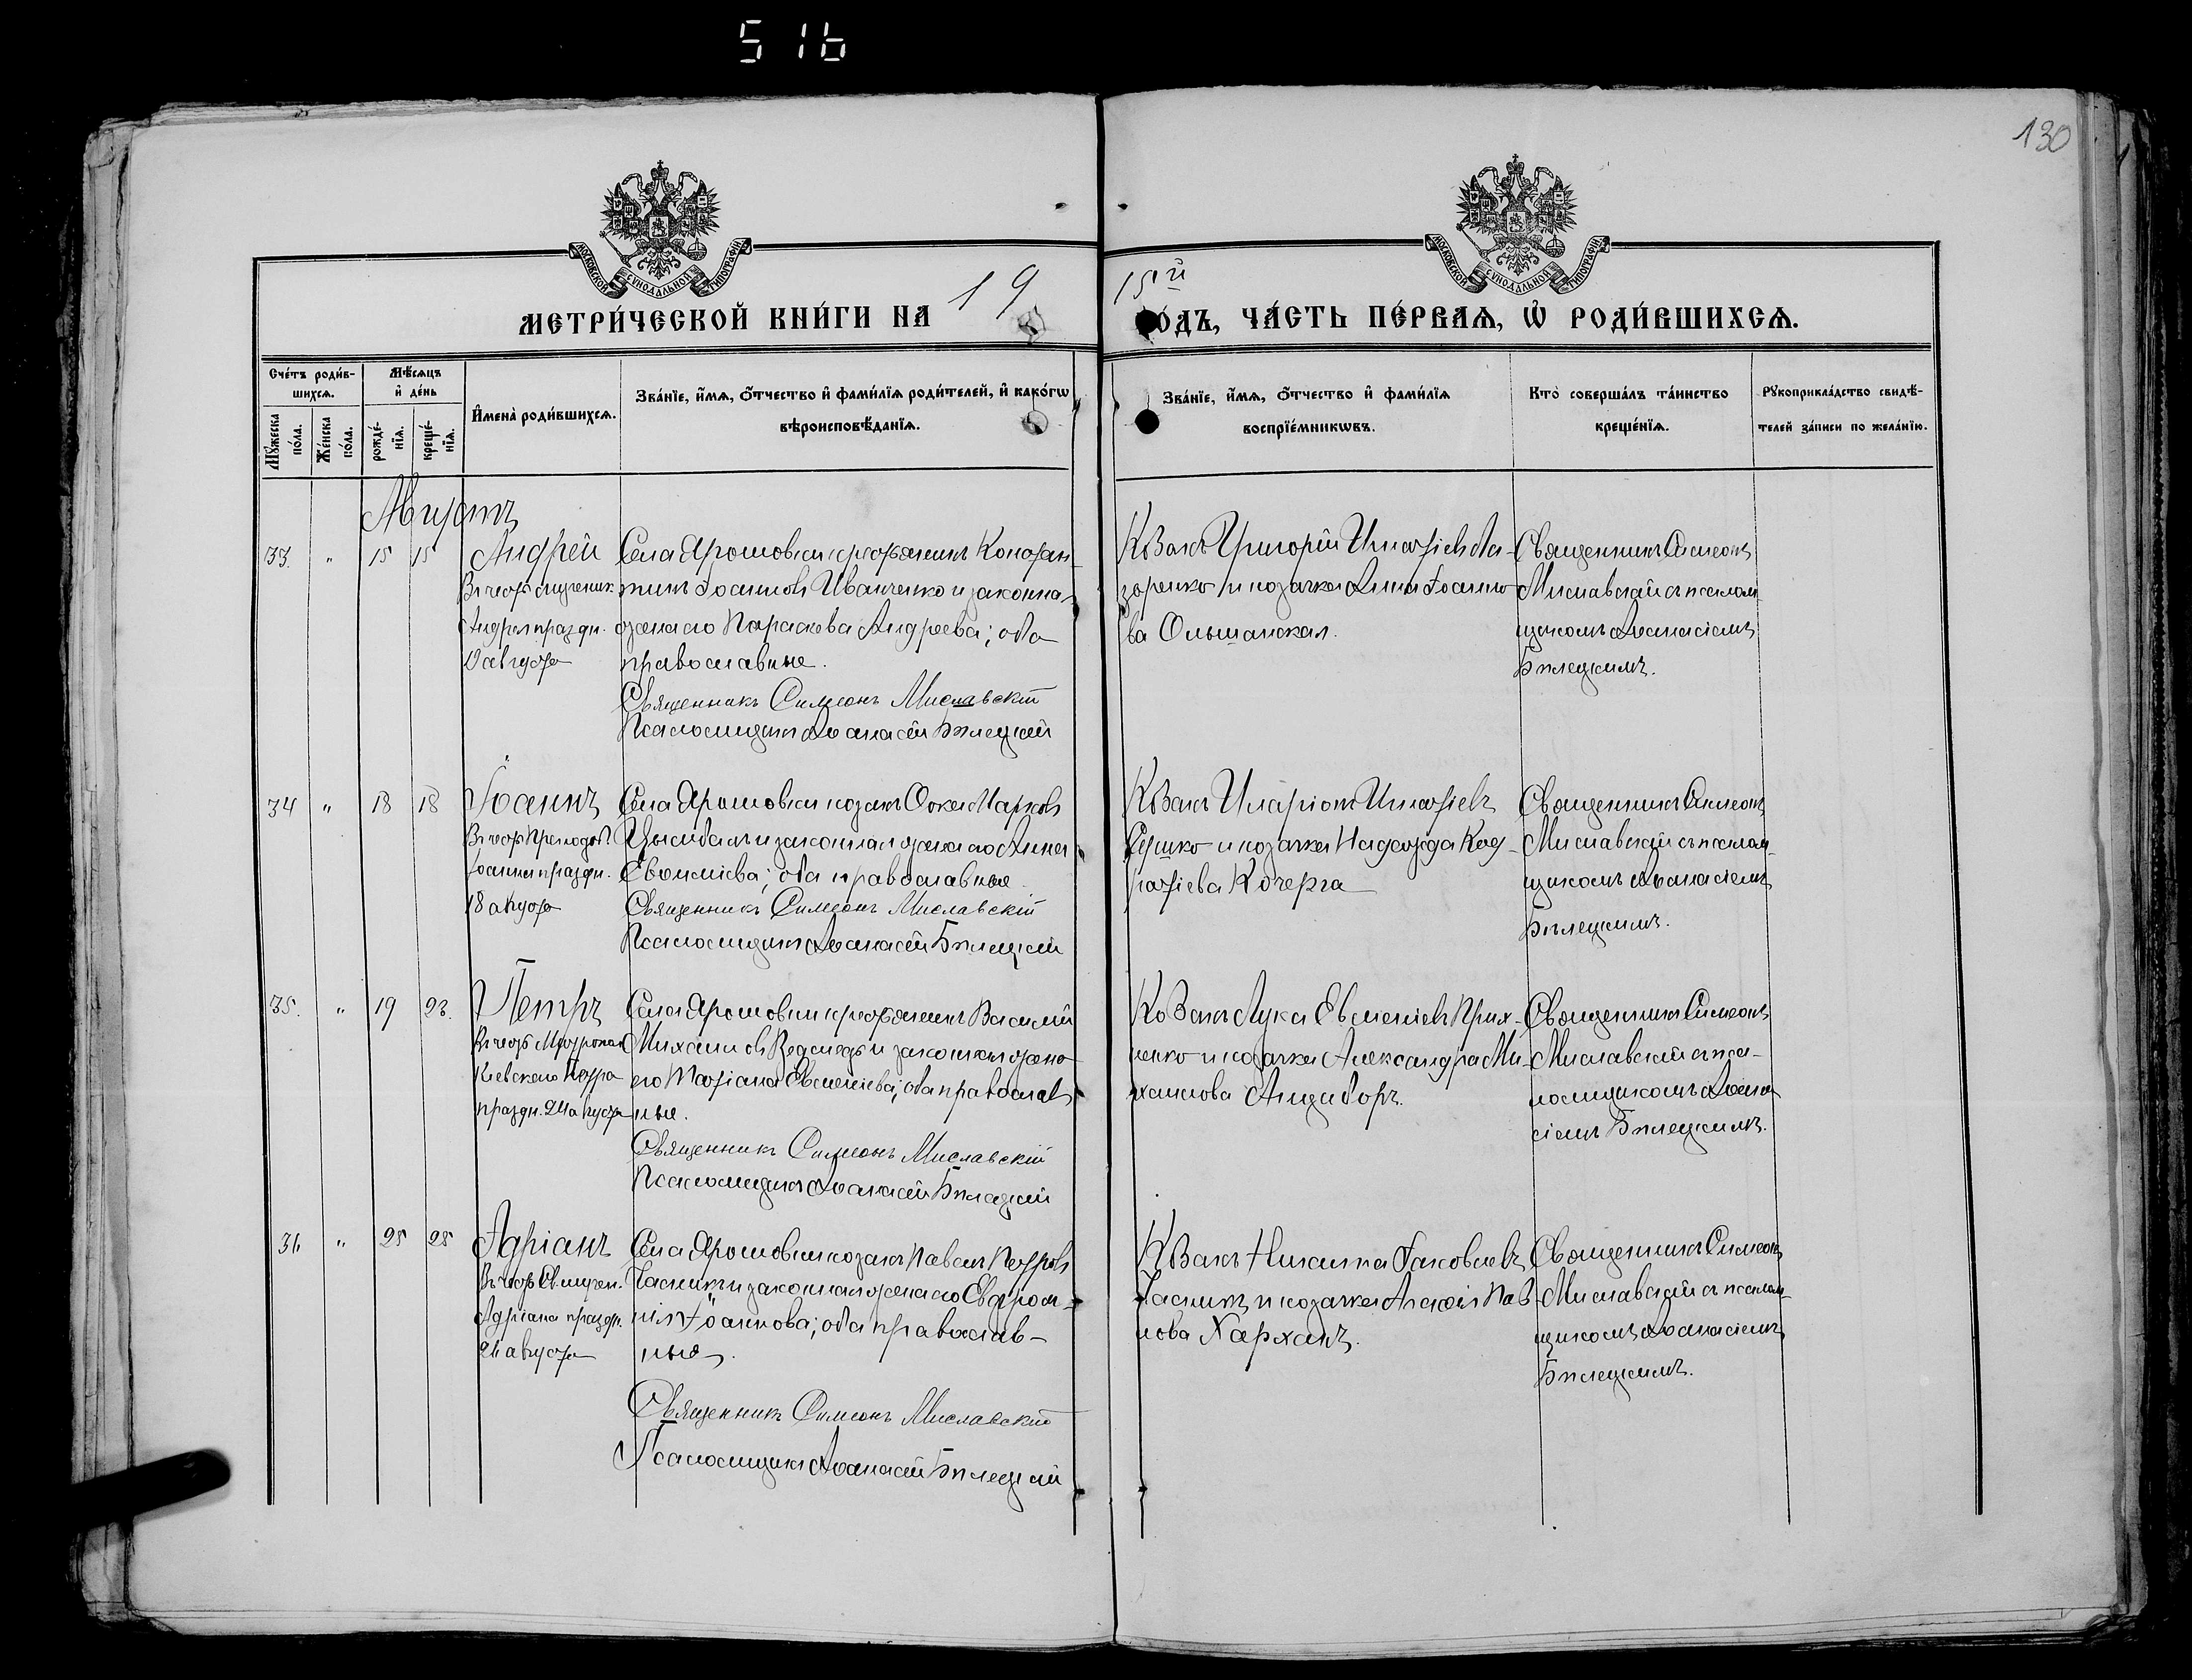 516
130
МОСКОВСКОЙ СУНОДАЛЬНОЙ ТИПОГРАФІИ
МОСКОВСКОЙ СУНОДАЛЬНОЙ ТИПОГРАФІИ
МЕТРИ́ЧЕСКОЙ КНИ́ГИ НА 19
15й ГО́ДЪ, ЧА́СТЬ ПЕ́РВАѦ, Ѡ҆ РОДИ́ВШИХСѦ.
Сче́тъ роди́в-
шихсѧ.
Мꙋ́жеска
по́ла.
Же́нска
по́ла.
Мѣ́сѧцъ
и҆ де́нь
рожде́-
нїѧ.
креще́-
нїѧ.
И҆мена̀ роди́вшихсѧ.
Зва́нїе, и҆́мѧ, ѻ҆́тчество и҆ фами́лїѧ роди́телей, и҆ како́гѡ
вѣроисповѣ́данїѧ.
Зва́нїе, и҆́мѧ, ѻ҆́тчество и҆ фами́лїѧ
воспрїе́мникѡвъ.
Кто̀ соверша́лъ та́инство
креще́нїѧ.
Рꙋкоприкла́дство свидѣ́-
телей за́писи по жела́нїю.
Августъ
33. " 15 15 Андрей
Въ честь мученик.
Андрея праздн.
августа
Села Ярошовки крестьянинъ Констан-
тинъ Іоанновъ Иванченко и законная
жена его Параскева Андреева; оба
православные.
Священникъ Симеонъ Миславскій
Псаломщикъ Аѳанасій Билецкій
Козакъ Григорій Игнатіевъ Ла-
заренко и козачка Анна Іоанно-
ва Ольшанская.
Священникъ Симеонъ
Миславскій съ псалом-
щикомъ Аѳанасіемъ
Билецкимъ.
34 " 18 18 Іоаннъ
Въ честь Преподоб.
Іоанна праздн.
18 августа
Села Ярошовки козакъ Марковъ
Цымбалъ и законная жена его Анна
Евѳиміева; оба православные.
Священникъ Симеонъ Миславскій
Псаломщикъ Аѳанасій Билецкій
Козакъ Иларіонъ Игнатіевъ
и козачка Надежда Код-
ратіева Кочерга
Священникъ Симеонъ
Миславскій съ псалом-
щикомъ Аѳанасіемъ
Билецкимъ.
35. " 19 23. Петръ
Въ честь Митропол.
Кіевскаго Петра
праздн. 24 августа
Села Ярошовки крестьянинъ Василій
Михаиловъ Ведмедь и законная жена
его Татіана Евменіева; оба православ-
ные.
Священникъ Симеонъ Миславскій
Псаломщикъ Аѳанасій Билецкій
Козакъ Лука Евменіевъ Прих-
ненко и козачка Александра Ми-
хаилова
Священникъ Симеонъ
Миславскій съ пса-
ломщикомъ Аѳана-
сіемъ Билецкимъ.
36 " 25 28 Адріанъ
Въ честь Св. мучен.
Адріана праздн.
26 августа
Села Ярошовки козакъ Павелъ Петровъ
Часникъ и законная жена его Евфроси-
нія Іоаннова; оба православ-
ные.
Священникъ Симеонъ Миславскій
Псаломщикъ Аѳанасій Билецкій
Козакъ Никита Іаковлевъ
Часникъ и козачка Анастасія Пав-
лова Харханъ.
Священникъ Симеонъ
Миславскій съ псалом-
щикомъ Аѳанасіемъ
Билецкимъ.